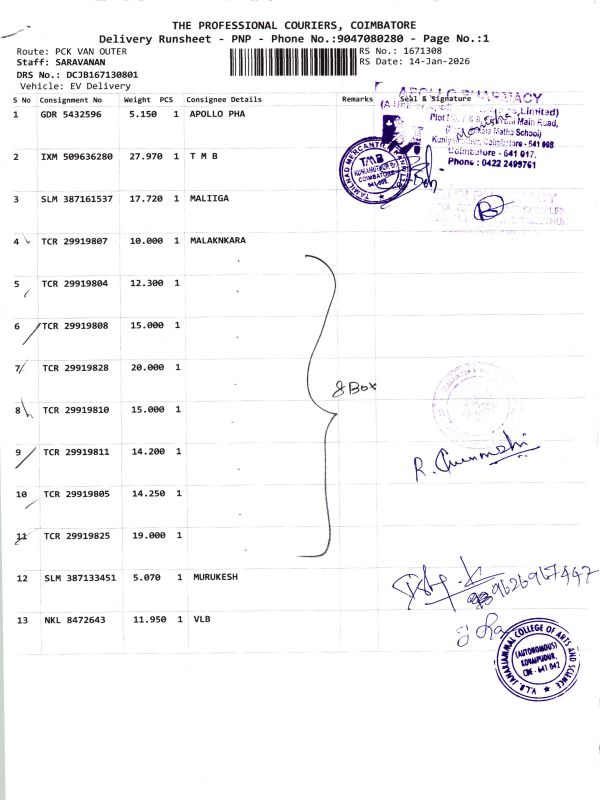 THE PROFESSIONAL COURIERS, COIMBATORE
Delivery Runsheet - PNP - Phone No.:9047080280 - Page No.:1
Route: PCK VAN OUTER RS No.: 1671308
Staff: SARAVANAN RS Date: 14-Jan-2026
DRS No.: DCJB167130801
Vehicle: EV Delivery
S No Consignment No Weight PCS Consignee Details Remarks Seal & Signature
1 GDR 5432596 5.150 1 APOLLO PHA
APOLLO PHARMACY
Limited)
Main Road,
Matha School)
Coimbatore - 641 017.
Phone : 0422 2499761
2 IXM 509636280 27.970 1 T M B
TAMILNAD MERCANTILE BANK
TMB
COIMBATORE
3 SLM 387161537 17.720 1 MALIIGA
4 TCR 29919807 10.000 1 MALAKNKARA
5 TCR 29919804 12.300 1
6 TCR 29919808 15.000 1
7 TCR 29919828 20.000 1
8 Box
8 TCR 29919810 15.000 1
9 TCR 29919811 14.200 1
10 TCR 29919805 14.250 1
11 TCR 29919825 19.000 1
12 SLM 387133451 5.070 1 MURUKESH
9626967447
13 NKL 8472643 11.950 1 VLB
V.L.B. JANAKIAMMAL COLLEGE OF ARTS AND SCIENCE
(AUTONOMOUS)
KOVAIPUDUR,
CBE - 641 042